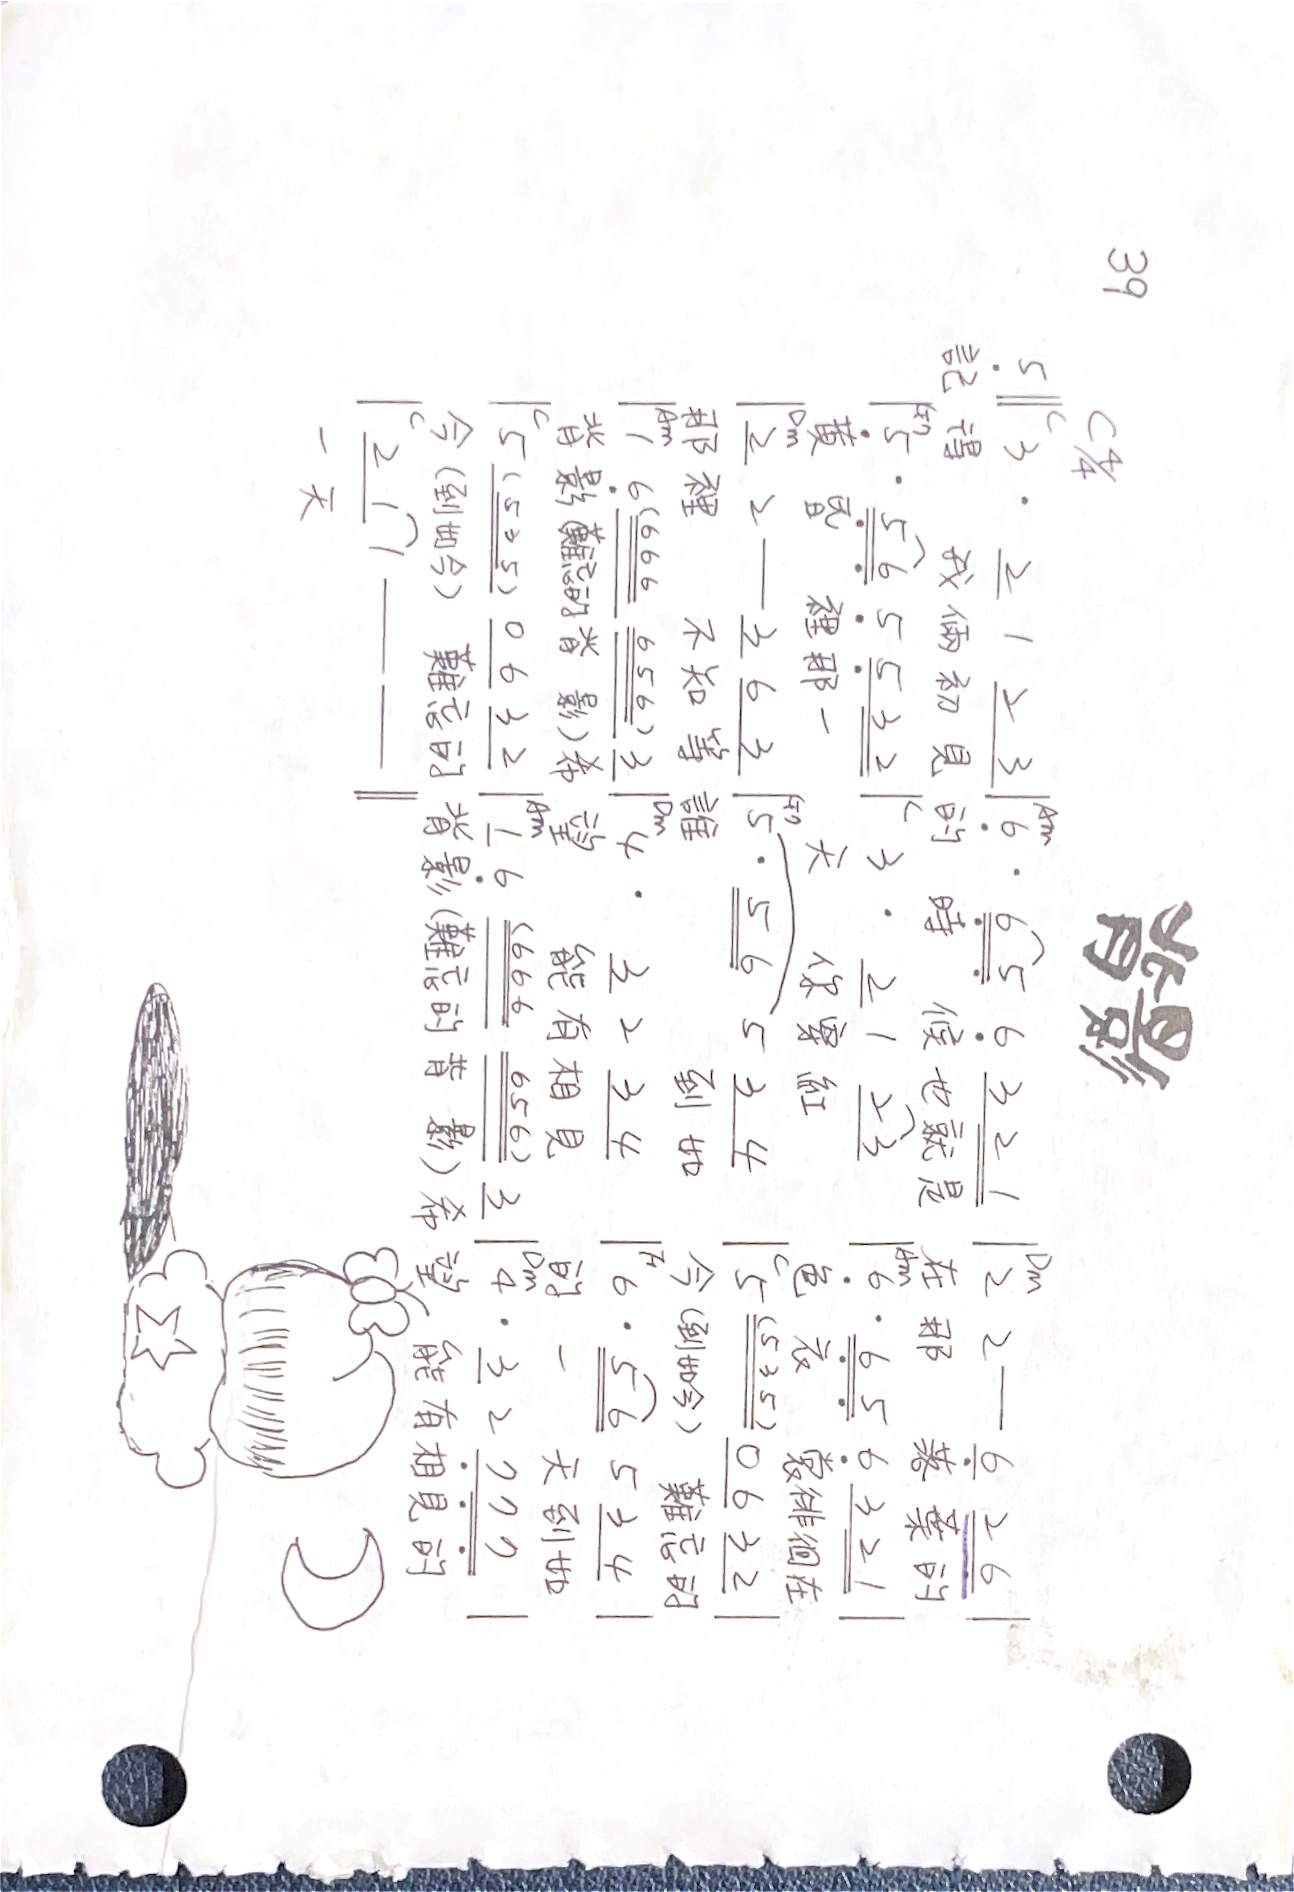 背影
39
C 4/4
C Am Dm
5 ‖ 3 · 2 1 2 3 | 6 · 6 5 6 3 2 1 | 2 2 — 6 2 6 |
記得 我倆初見的時候也就是在那 落葉的
G7 C Am
| 5 · 5 6 5 5 3 2 | 3 · 2 1 2 3 | 6 · 6 5 6 3 2 1 |
黃昏裡那一天 你穿紅 色衣裳徘徊在
Dm G7 C
| 2 2 — 3 6 3 | 5 · 5 6 5 3 4 | 5 (5 3 5) 0 6 3 2 |
那裡 不知等誰 到如今(到如今) 難忘的
Am Dm F
| 1 6 (6 6 6 6 5 6) 3 | 4 · 3 2 3 4 | 6 · 5 6 5 3 4 |
背影(難忘的背影)希望 能有相見 的一天到如
C Am Dm
| 5 (5 3 5) 0 6 3 2 | 1 6 (6 6 6 6 5 6) 3 | 4 · 3 2 7 7 7 |
今(到如今) 難忘的背影(難忘的背影)希望 能有相見的
C
| 2 1 1 — — ‖
一天